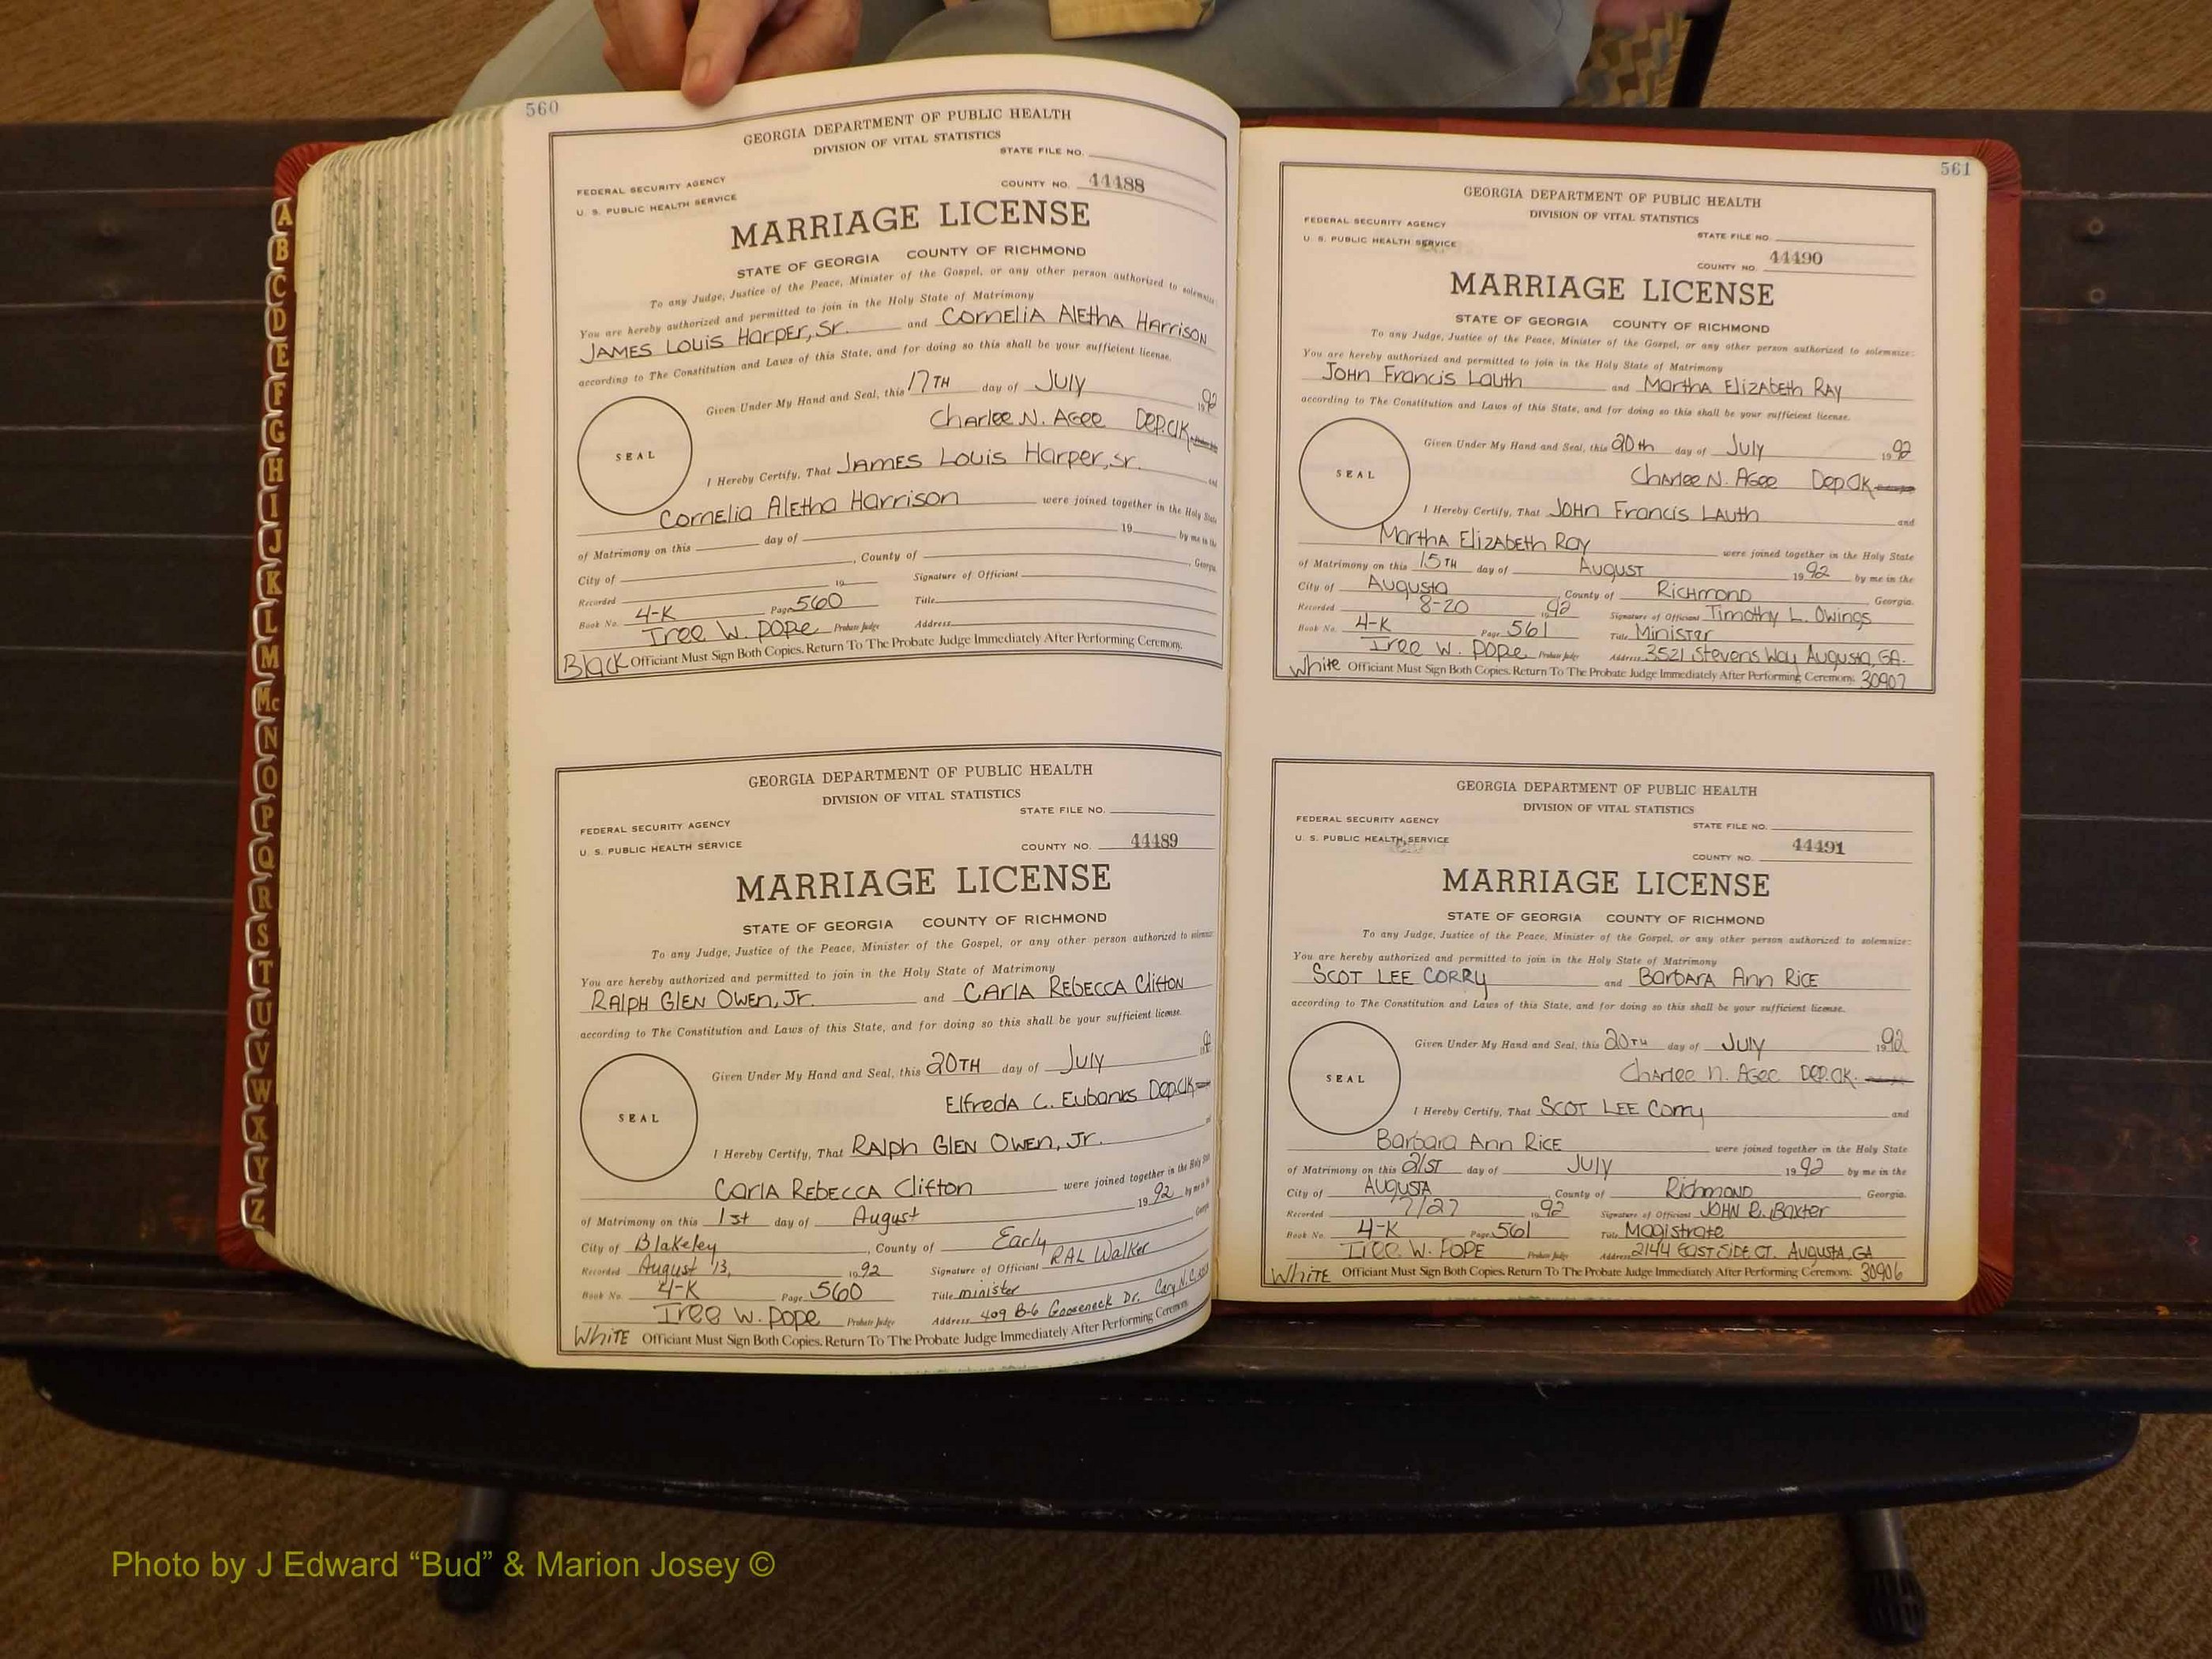 A
B
C
D
E
F
G
H
I
J
K
L
M
Mc
N
O
P
Q
R
S
T
U
V
W
X
Y
Z
560
GEORGIA DEPARTMENT OF PUBLIC HEALTH
DIVISION OF VITAL STATISTICS
STATE FILE NO.
FEDERAL SECURITY AGENCY
U. S. PUBLIC HEALTH SERVICE
COUNTY NO. 44488
MARRIAGE LICENSE
STATE OF GEORGIA COUNTY OF RICHMOND
To any Judge, Justice of the Peace, Minister of the Gospel, or any other person authorized to solemnize:
You are hereby authorized and permitted to join in the Holy State of Matrimony
JAMES Louis Harper, Sr. and Cornelia Aletha Harrison
according to The Constitution and Laws of this State, and for doing so this shall be your sufficient license.
Given Under My Hand and Seal, this 17TH day of July 1992
Charlee N. Agee Dep.Clk
SEAL
I Hereby Certify, That JAMES Louis Harper, sr. and
Cornelia Aletha Harrison were joined together in the Holy State
of Matrimony on this day of 19 by me in the
City of , County of , Georgia.
Recorded 19 Signature of Officiant
Book No. 4-K Page 560 Title
Iree W. Pope Probate Judge Address
Black Officiant Must Sign Both Copies. Return To The Probate Judge Immediately After Performing Ceremony.
GEORGIA DEPARTMENT OF PUBLIC HEALTH
DIVISION OF VITAL STATISTICS
STATE FILE NO.
FEDERAL SECURITY AGENCY
U. S. PUBLIC HEALTH SERVICE
COUNTY NO. 44489
MARRIAGE LICENSE
STATE OF GEORGIA COUNTY OF RICHMOND
To any Judge, Justice of the Peace, Minister of the Gospel, or any other person authorized to solemnize:
You are hereby authorized and permitted to join in the Holy State of Matrimony
Ralph Glen Owen, Jr. and Carla Rebecca Clifton
according to The Constitution and Laws of this State, and for doing so this shall be your sufficient license.
Given Under My Hand and Seal, this 20TH day of July
Elfreda C. Eubanks Dep.Clk
SEAL
I Hereby Certify, That Ralph Glen Owen, Jr. and
Carla Rebecca Clifton were joined together in the Holy State
of Matrimony on this 1st day of August 1992 by me in the
City of Blakeley , County of Early , Georgia.
Recorded August 13, 1992 Signature of Officiant RAL Walker
Book No. 4-K Page 560 Title minister
Iree W. Pope Probate Judge Address 409 B-6 Gooseneck Dr. Cary N.C.
White Officiant Must Sign Both Copies. Return To The Probate Judge Immediately After Performing Ceremony.
561
GEORGIA DEPARTMENT OF PUBLIC HEALTH
DIVISION OF VITAL STATISTICS
FEDERAL SECURITY AGENCY
STATE FILE NO.
U. S. PUBLIC HEALTH SERVICE
COUNTY NO. 44490
MARRIAGE LICENSE
STATE OF GEORGIA COUNTY OF RICHMOND
To any Judge, Justice of the Peace, Minister of the Gospel, or any other person authorized to solemnize:
You are hereby authorized and permitted to join in the Holy State of Matrimony
John Francis Lauth and Martha Elizabeth Ray
according to The Constitution and Laws of this State, and for doing so this shall be your sufficient license.
Given Under My Hand and Seal, this 20th day of July 1992
Charlee N. Agee Dep Clk
SEAL
I Hereby Certify, That John Francis Lauth and
Martha Elizabeth Ray were joined together in the Holy State
of Matrimony on this 15TH day of August 1992 by me in the
City of Augusta , County of Richmond , Georgia.
Recorded 8-20 1992 Signature of Officiant Timothy L. Owings
Book No. 4-K Page 561 Title Minister
Iree W. Pope Probate Judge Address 3521 Stevens Way Augusta, GA.
White Officiant Must Sign Both Copies. Return To The Probate Judge Immediately After Performing Ceremony. 30907
GEORGIA DEPARTMENT OF PUBLIC HEALTH
DIVISION OF VITAL STATISTICS
FEDERAL SECURITY AGENCY
STATE FILE NO.
U. S. PUBLIC HEALTH SERVICE
COUNTY NO. 44491
MARRIAGE LICENSE
STATE OF GEORGIA COUNTY OF RICHMOND
To any Judge, Justice of the Peace, Minister of the Gospel, or any other person authorized to solemnize:
You are hereby authorized and permitted to join in the Holy State of Matrimony
SCOT LEE CORRY and Barbara Ann Rice
according to The Constitution and Laws of this State, and for doing so this shall be your sufficient license.
Given Under My Hand and Seal, this 20TH day of July 1992
Charlee N. Agee Dep.Clk.
SEAL
I Hereby Certify, That SCOT LEE Corry and
Barbara Ann Rice were joined together in the Holy State
of Matrimony on this 21ST day of July 1992 by me in the
City of Augusta , County of Richmond Georgia.
Recorded 7/27 1992 Signature of Officiant JOHN R. Baxter
Book No. 4-K Page 561 Title Magistrate
Iree W. Pope Probate Judge Address 2144 East Side CT. Augusta, GA
White Officiant Must Sign Both Copies. Return To The Probate Judge Immediately After Performing Ceremony. 30906
Photo by J Edward “Bud” & Marion Josey ©